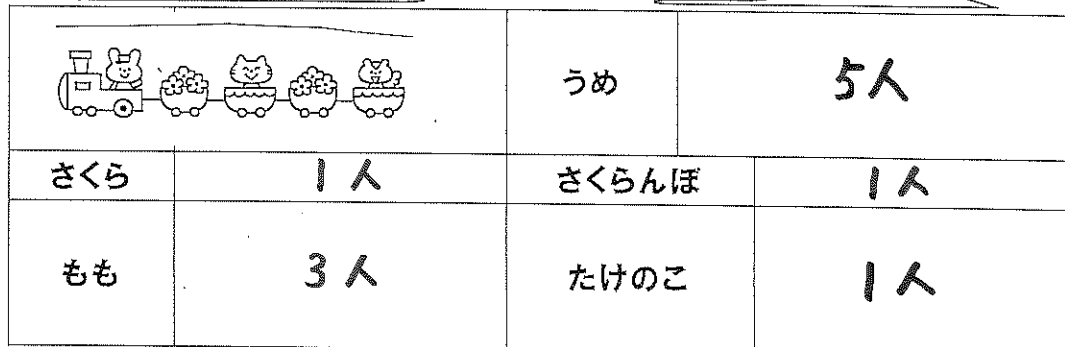 うめ 5人
さくら 1人 さくらんぼ 1人
もも 3人 たけのこ 1人